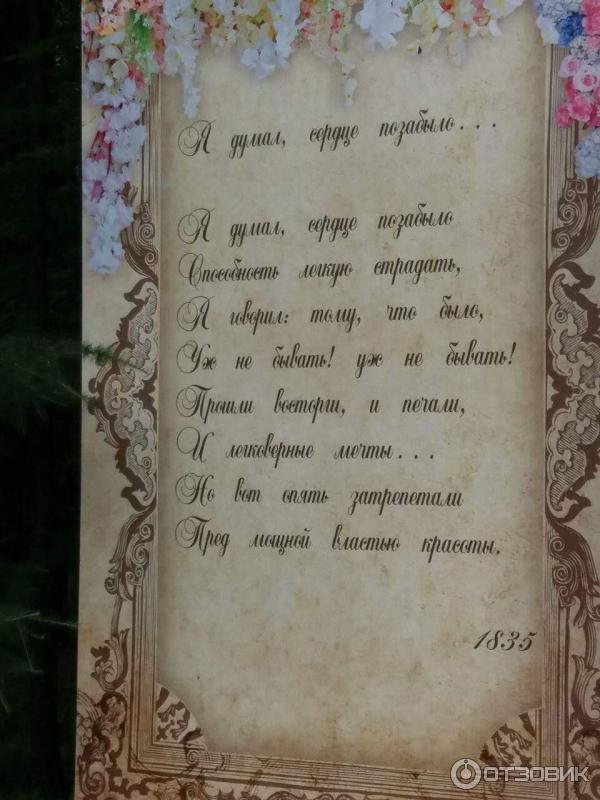 Я думал, сердце позабыло...
Я думал, сердце позабыло
Способность легкую страдать,
Я говорил: тому, что было,
Уж не бывать! уж не бывать!
Прошли восторги, и печали,
И легковерные мечты...
Но вот опять затрепетали
Пред мощной властью красоты.
1835
ОТЗОВИК